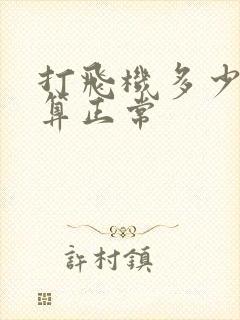 打飛機多少
算正常
許村鎮